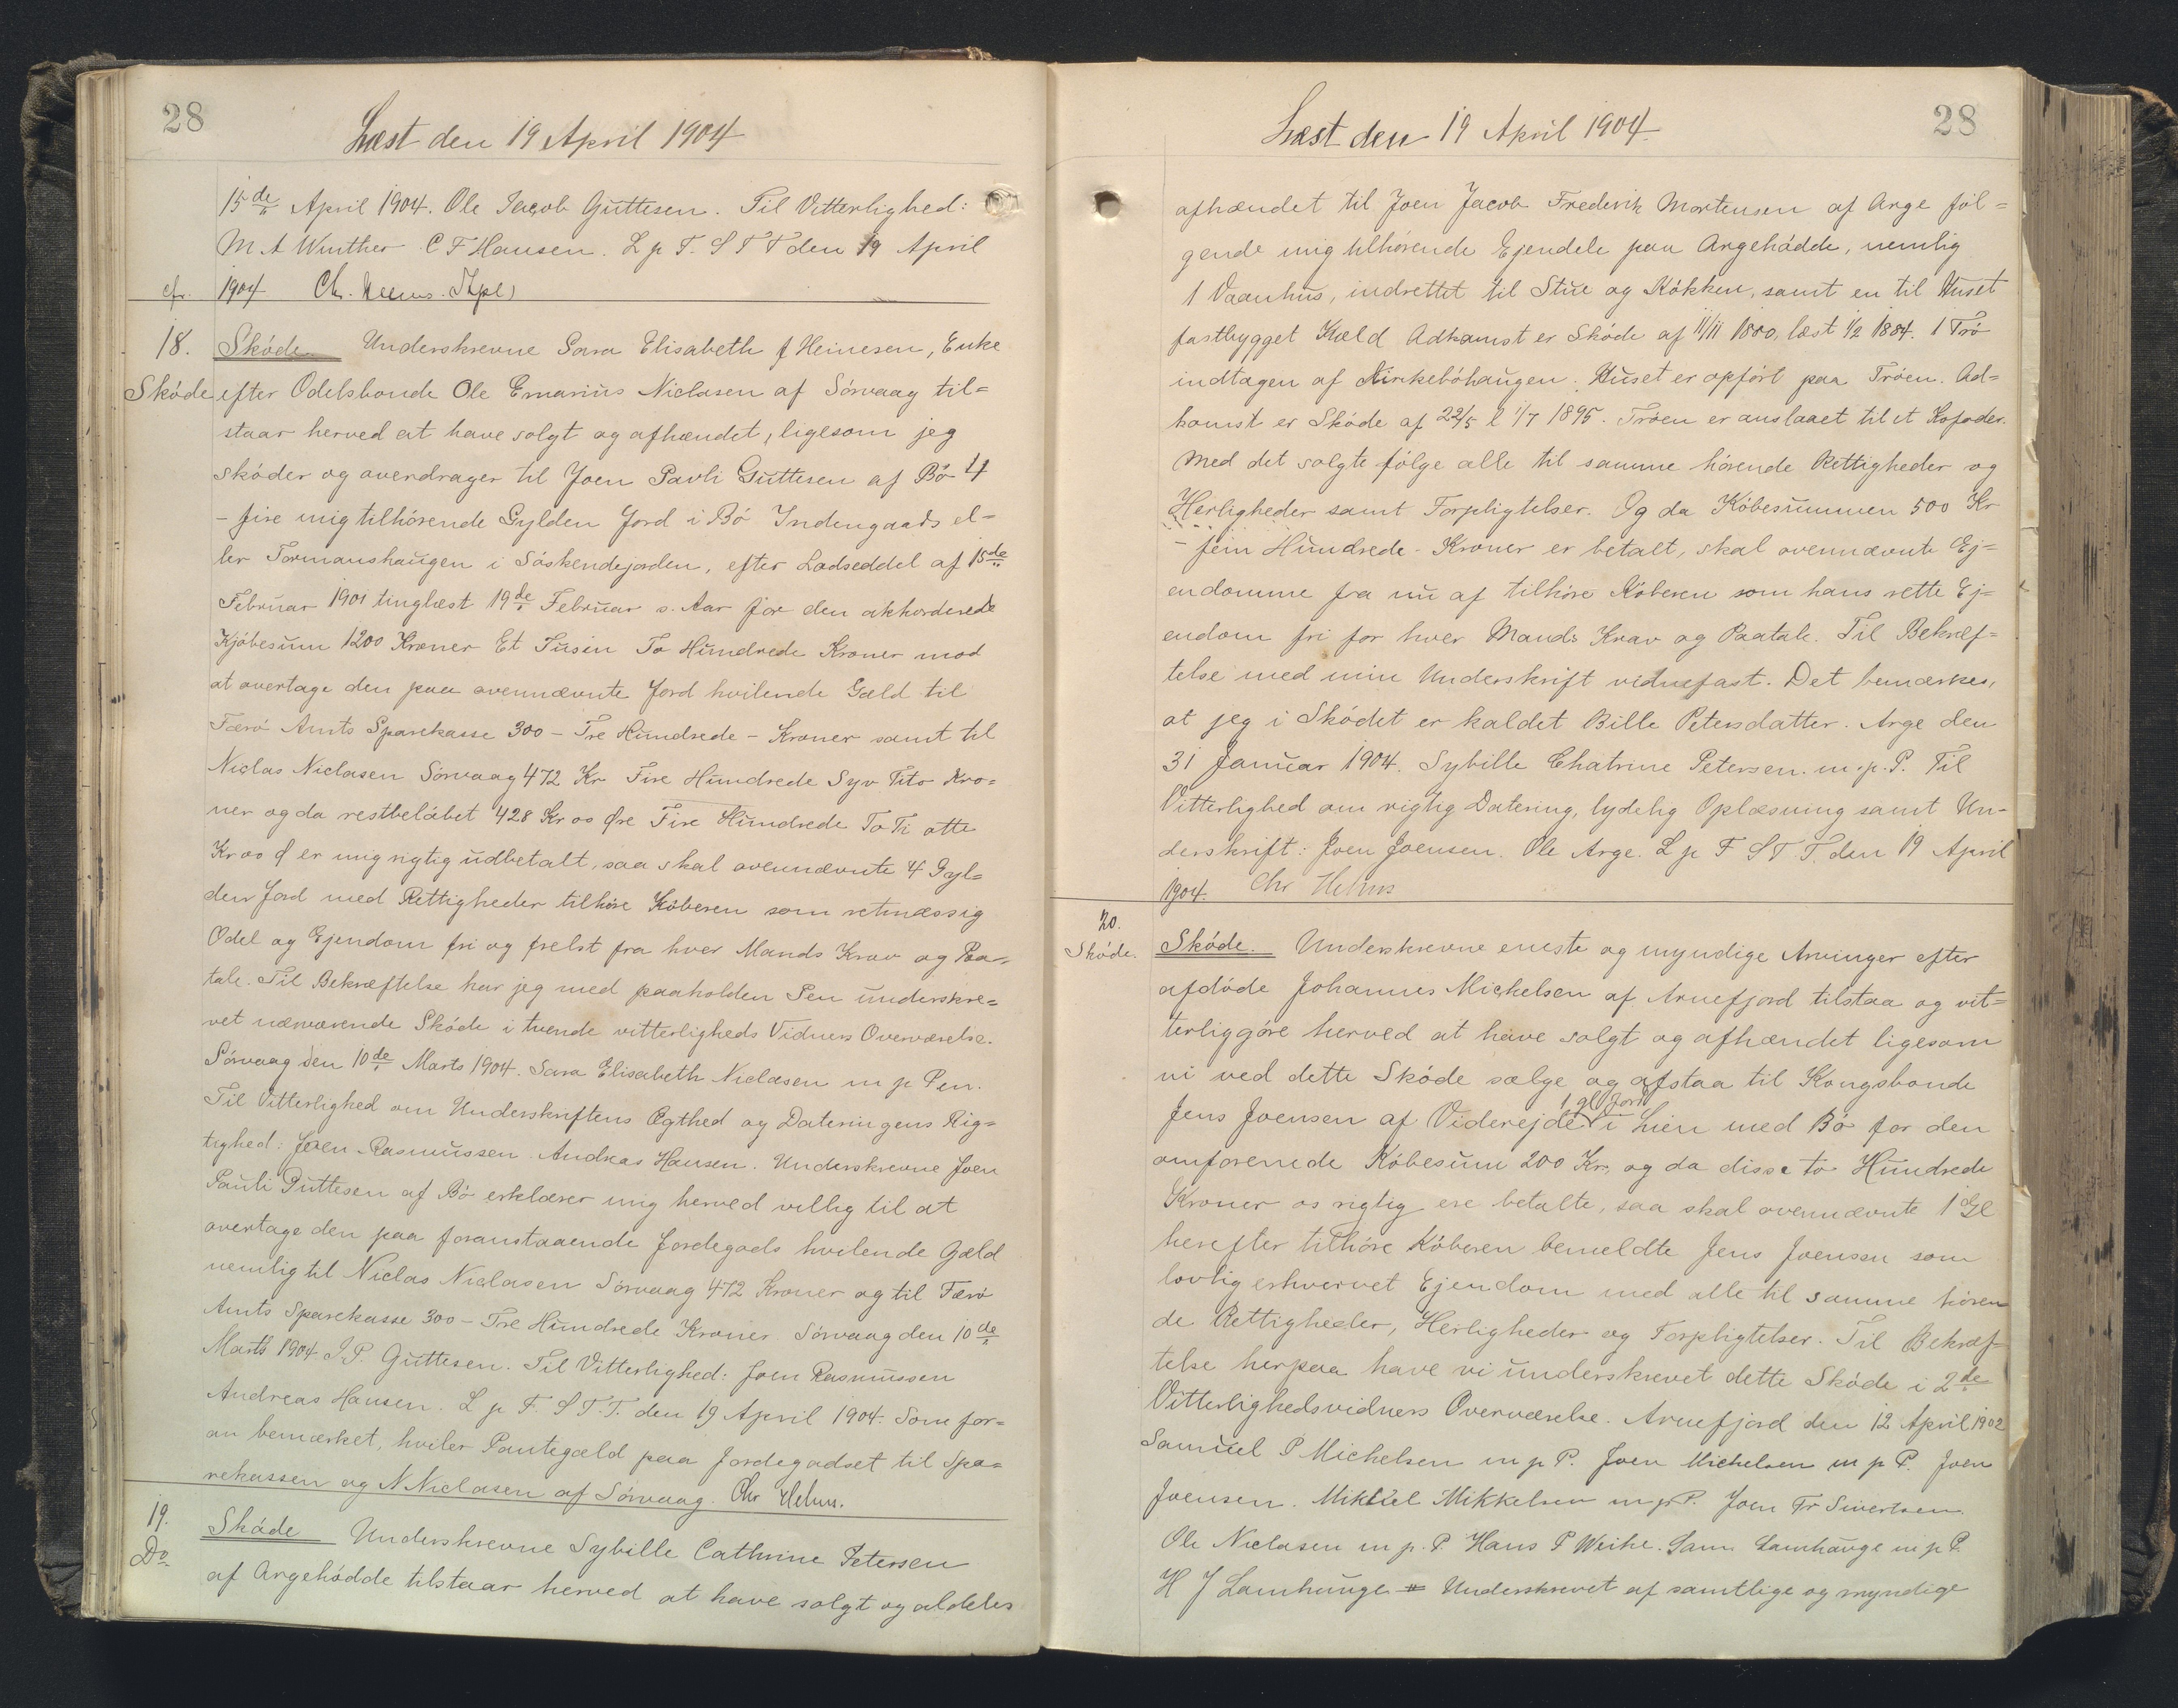 28
Læst den 19 April 1904
15de April 1904. Ole Jacob Guttesen. Til Vitterlighed:
M. A Winther C F Hansen. L p F. S T T den 19 April
cfr. 1904 Chr.
18. Skøde Underskrevne Sara Elisabeth f Heinesen, Enke
Skøde efter Odelsbonde Ole Emarius Niclasen af Sörvaag til=
staar herved at have solgt og afhændet, ligesom jeg
skøder og overdrager til Joen Pavli Guttesen af Bø 4
- fire mig tilhørende Gylden Jord i Bø Indengaards el=
ler Tormanshaugen i Søskendejorden, efter Lodseddel af 15de
Februar 1901 tinglæst 19de Februar s. Aar for den akkorderede
Kjøbesum 1200 Kroner Et Tusin To Hundrede Kroner mod
at overtage den paa ovennævnte Jord hvilende Gæld til
Færø Amts Sparekasse 300 - Tre Hundrede - Kroner samt til
Niclas Niclasen Sørvaag 472 Kr Fire Hundrede Syv Tito Kro=
ner og da restbeløbet 428 Kr 00 Øre Fire Hundrede To Ti otte
Kr 00 Ø er mig rigtig udbetalt, saa skal ovennævnte 4 Gyl=
den Jord med Rettigheder tilhøre Køberen som retmæssig
Odel og Ejendom fri og frelst fra hver Mands Krav og Paa=
tale. Til Bekræftelse har jeg med paaholden Pen underskre=
vet nærværende Skøde i tvende vitterligheds Vidners Overværelse.
Sörvaag den 10de Marts 1904. Sara Elisabeth Niclasen m p Pen.
Til Vitterlighed om Underskriftens Ægthed og Dateringens Rig=
tighed: Joen Rasmussen Andreas Hansen. Underskrevne Joen
Pauli Guttesen af Bø erklærer mig herved villig til at
overtage den paa foranstaaende Jordegods hvilende Gæld
nemlig til Niclas Niclasen Sørvaag 472 Kroner og til Færø
Amts Sparekasse 300 - Tre Hundrede Kroner Sörvaag den 10de
Marts 1904 J.P. Guttesen. Til Vitterlighed: Joen Rasmussen
Andreas Hansen. L p F. S T. T. den 19 April 1904. Som for=
an bemærket, hviler Pantegæld paa Jordegodset til Spa=
rekassen og N Niclasen af Sörvaag. Chr
19. Skøde Underskrevne Sybille Cathrine Petersen
Do af Argehødde tilstaar herved at have solgt og aldeles
28
Læst den 19 April 1904
afhændet til Joen Jacob Frederik Mortensen af Arge føl=
gende mig tilhørende Ejendele paa Argehødde, nemlig
1 Vaanhus, indrettet til Stue og Køkken, samt en til Huset
fastbygget Kæld Adkomst er Skøde af 11/11 1880, læst 1/2 1884. 1 Trø
indtagen af Kirkebøhaugen. Huset er opført paa Trøen. Ad=
komst er Skøde af 22/5 l 1/7 1895. Trøen er anslaaet til et Kofoder.
Med det solgte følge alle til samme hørende Rettigheder og
Herligheder samt Forpligtelser. Og da Købesummen 500 Kr
- fem Hundrede - Kroner er betalt, skal ovennævnte Ej=
endomme fra nu af tilhøre Køberen som hans rette Ej=
endom fri for hver Mands Krav og Paatale. Til Bekræf=
telse med min Underskrift vidnefast. Det bemærkes,
at jeg i Skødet er kaldet Bille Petersdatter. Arge den
31 Januar 1904. Sybille Chatrine Petersen. m. p. P. Til
Vitterlighed om rigtig Datering, lydelig Oplæsning samt Un-
derskrift: Joen Joensen. Ole Arge. L p F S T T. den 19 April
1904. Chr
20.
Skøde. Skøde. Underskrevne eneste og myndige Arvinger efter
afdøde Johannes Michelsen af Arnefjord tilstaa og vit=
terliggøre herved at have solgt og afhændet ligesom
vi ved dette Skøde sælge og afstaa til Kongsbonde
Jens Joensen af Viderejde 1 gl Jord i Lien med Bø for den
omforenede Købesum 200 Kr, og da disse to Hundrede
Kroner os rigtig ere betalte, saa skal ovennævnte 1 Gl
herefter tilhøre Køberen bemeldte Jens Joensen som
lovlig erhvervet Ejendom med alle til samme høren
de Rettigheder, Herligheder og Forpligtelser. Til Bekræf=
telse herpaa have vi underskrevet dette Skøde i 2de
Vitterlighedsvidners Overværelse. Arnefjord den 12 April 1902
Samuel P Michelsen m p P. Joen Michelsen m p P. Joen
Joensen. Mikkel Mikkelsen m p P. Joen Fr Sivertsen
Ole Niclasen m p. P. Hans P Weihe. Sam Lamhauge m p P.
H J Lamhauge Underskrevet af samtlige og myndige